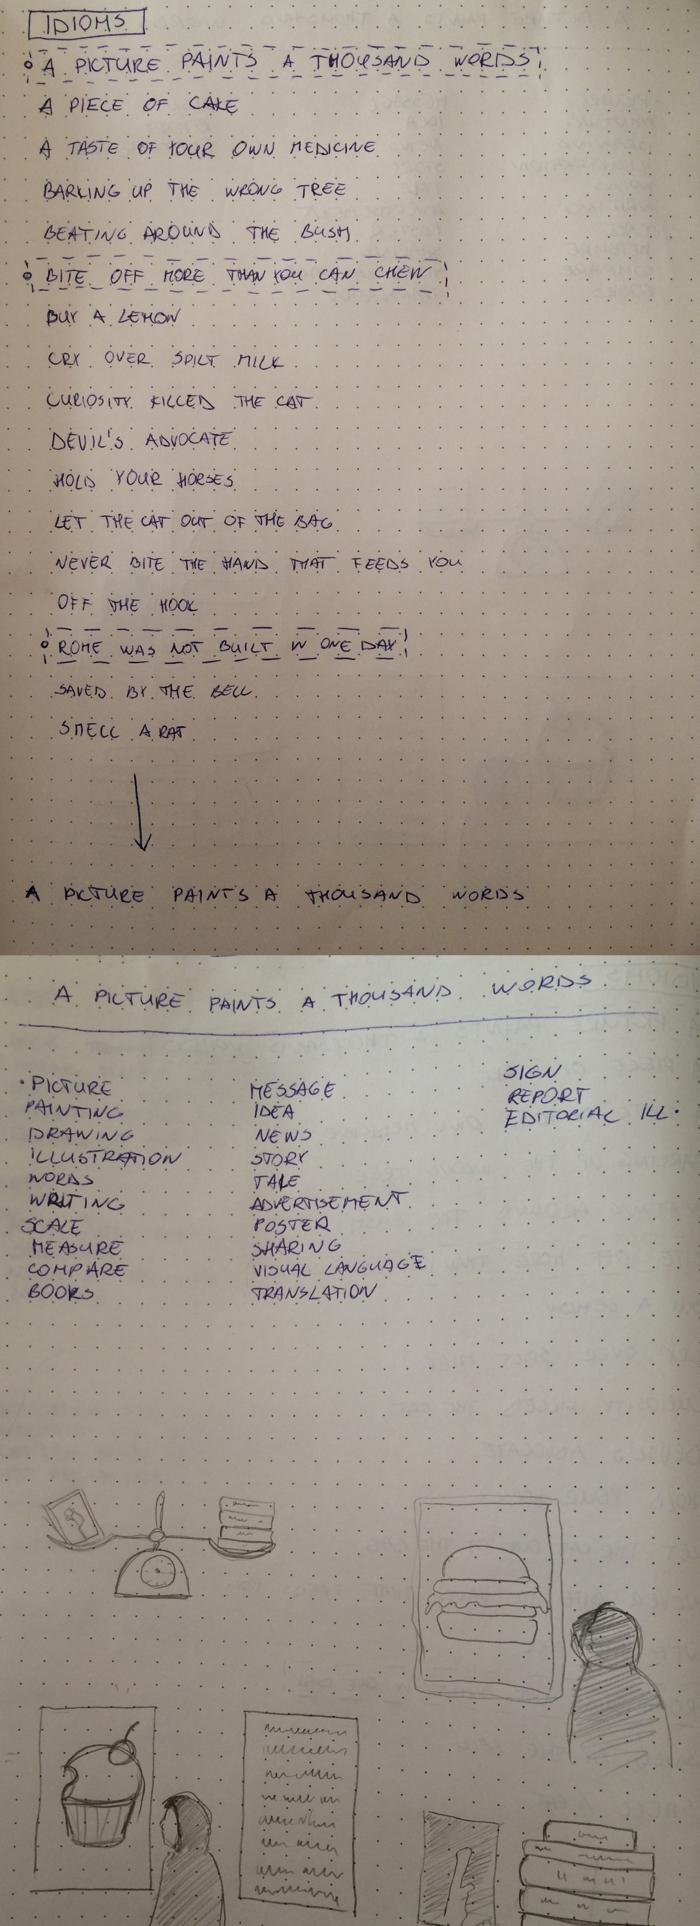 IDIOMS
A PICTURE PAINTS A THOUSAND WORDS
A PIECE OF CAKE
A TASTE OF YOUR OWN MEDICINE
BARKING UP THE WRONG TREE
BEATING AROUND THE BUSH
BITE OFF MORE THAN YOU CAN CHEW
BUY A LEMON
CRY OVER SPILT MILK
CURIOSITY KILLED THE CAT
DEVIL'S ADVOCATE
HOLD YOUR HORSES
LET THE CAT OUT OF THE BAG
NEVER BITE THE HAND THAT FEEDS YOU
OFF THE HOOK
ROME WAS NOT BUILT IN ONE DAY
SAVED BY THE BELL
SMELL A RAT
A PICTURE PAINTS A THOUSAND WORDS
A PICTURE PAINTS A THOUSAND WORDS
PICTURE
PAINTING
DRAWING
ILLUSTRATION
WORDS
WRITING
SCALE
MEASURE
COMPARE
BOOKS
MESSAGE
IDEA
NEWS
STORY
TALE
ADVERTISEMENT
POSTER
SHARING
VISUAL LANGUAGE
TRANSLATION
SIGN
REPORT
EDITORIAL ILL.